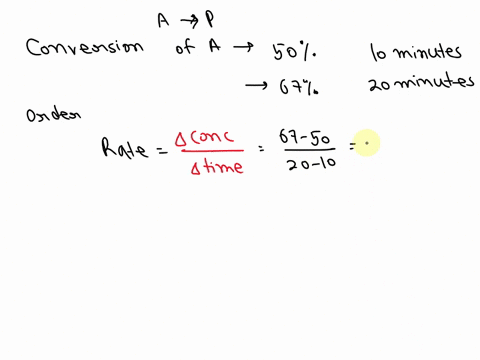 A → P
Conversion of A → 50%. 10 minutes
→ 67%. 20 minutes
Order
Rate = Δ Conc / Δ time = 67-50 / 20-10 =